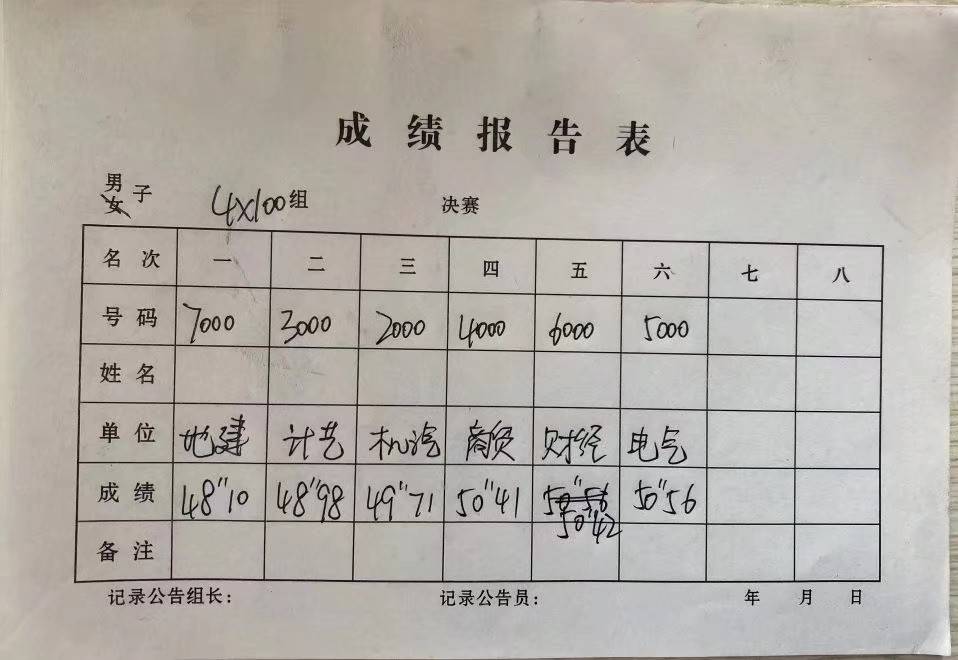 成绩报告表
男
女 子 4×100 组 决赛
名次 一 二 三 四 五 六 七 八
号码 7000 3000 2000 4000 6000 5000
姓名
单位 地建 计艺 机汽 商贸 财经 电气
成绩 48"10 48"98 49"71 50"41 50"56 50"56
50"42
备注
记录公告组长： 记录公告员： 年 月 日